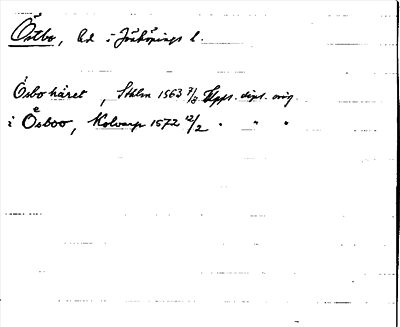 Östbo, hd i Jönköpings l.
Ösbo häret, Sthlm 1563 7/3 Upps. dipl. orig.
i Ösboo, 1572 12/2 " " "